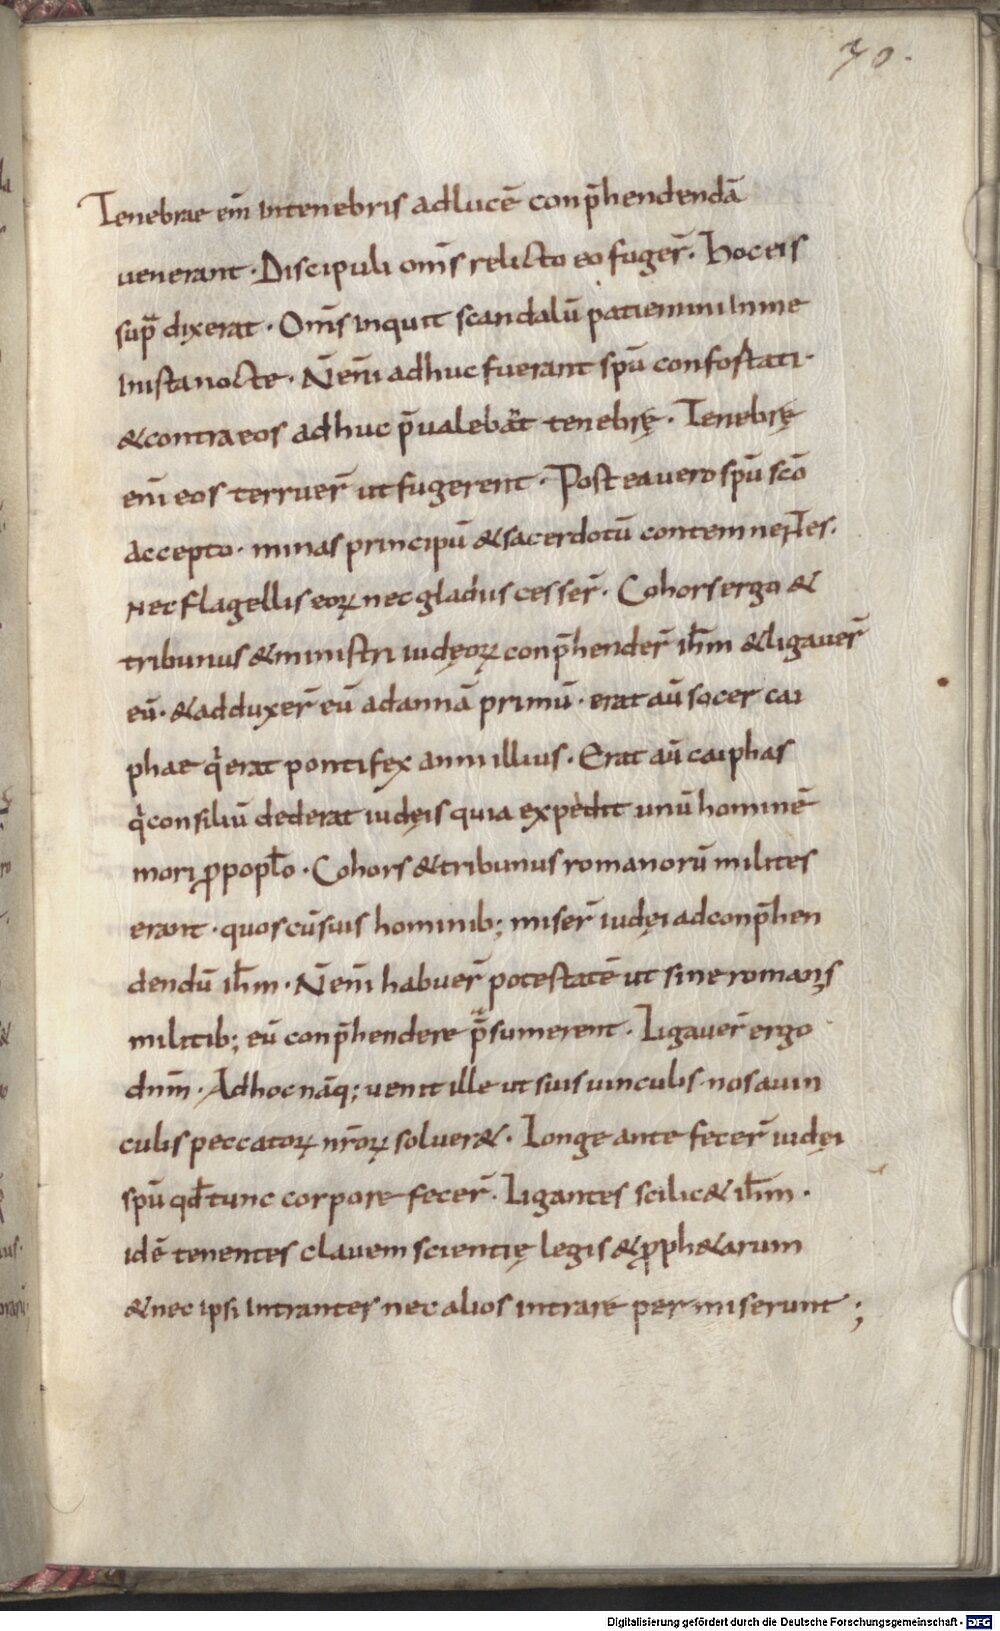 70.
Tenebrae em̄ intenebris adlucē conp̄hendendā
uenerant · Discipuli om̄s relicto eo fuger̄ · Hoc eis
sup̄ dixerat · Om̄s inquit scandalū patiemini in me
in ista nocte · N̄ em̄ adhuc fuerant sp̄u confortati ·
& contra eos adhuc p̄ualebat tenebrę · Tenebrę
em̄ eos terruer̄ ut fugerent · Post ea uero sp̄u sc̄o
accepto · minas principū & sacerdotū contemnentes ·
Nec flagellis eoꝝ nec gladiis cesser̄ · Cohors ergo &
tribunus & ministri iudęoꝝ conp̄hender̄ ih̄m & ligauer̄
eū · & adduxer̄ eū ad annā primū · erat aū socer cai
phae q̇ erat pontifex anni illius · Erat aū caiphas
q̇ consiliū dederat iudęis quia expedit unū hominē
mori ꝓ popl̄o · Cohors & tribunus romanorū milites
erant · quos cū suis hominib; miser̄ iudęi ad conp̄hen
dendū ih̄m · N̄ em̄ habuer̄ potestatē ut sine romanis
militib; eū conp̄hendere p̄sumerent · Ligauer̄ ergo
dn̄m · Ad hoc nāq; uenit ille ut suis uinculis · nos a uin
culis peccatoꝝ nr̄oꝝ soluer& · Longe ante fecer̄ iudęi
sp̄u qd̄ tunc corpore fecer̄ · Ligantes scilic& ih̄m ·
idē tenentes clauem scientię legis & ꝓph&arum
& nec ipsi intrantes nec alios intrare permiserunt ;
Digitalisierung gefördert durch die Deutsche Forschungsgemeinschaft - DFG